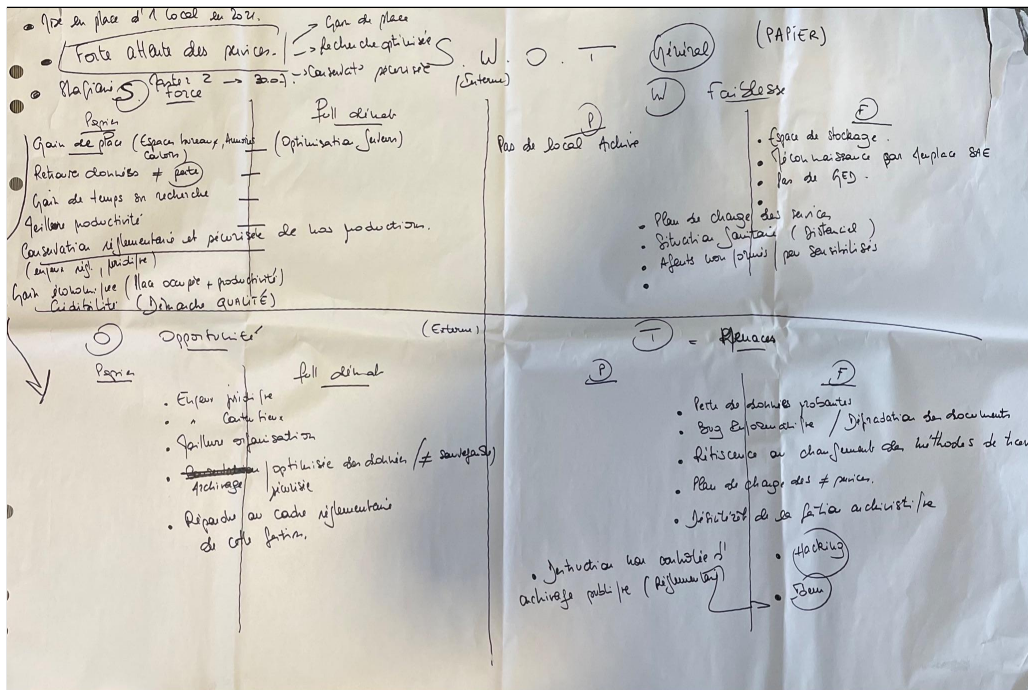 Mise en place d'1 local en 2021.
Forte attente des services.
→ Gain de place
→ Recherche optimisée
→ Conservat° sécurisée
Stagiaire Master 2 →
S. W. O. T Général (PAPIER)
(Interne)
S Force
Papier
Full démat
Gain de place (Espaces bureaux, Armoires
cartons)
(Optimisation Serveurs)
Retrouve données ≠ perte
Gain de temps en recherche
Meilleure productivité
Conservation réglementaire et sécurisée de nos production.
(enjeux régl, juridique)
Gain économique (Place occupée + productivité)
Crédibilité (Démarche QUALITÉ)
W Faiblesse
P
F
Pas de local Archive
• Espace de stockage.
• Méconnaissance SAE
• Pas de GED.
• Plan de charge des services
• Situation Sanitaire (Distanciel)
• Agents non formés peu sensibilisés
O Opportunité (Externe)
Papier
full démat
• Enjeux juridique
• " Contentieux
• Meilleure organisation
• Archivage / optimisée des données (≠ sauvegarde)
sécurisée
• Répondre au cadre réglementaire
de cette gestion.
T = Menaces
P
F
• Perte de données probantes
• Bug Informatique / Dégradation des documents
• Réticence au changement des méthodes de
• Plan de charge des ≠ services.
• de la gestion archivistique
• Destruction non contrôlée d'
archivage publique (Réglementaire)
• Hacking